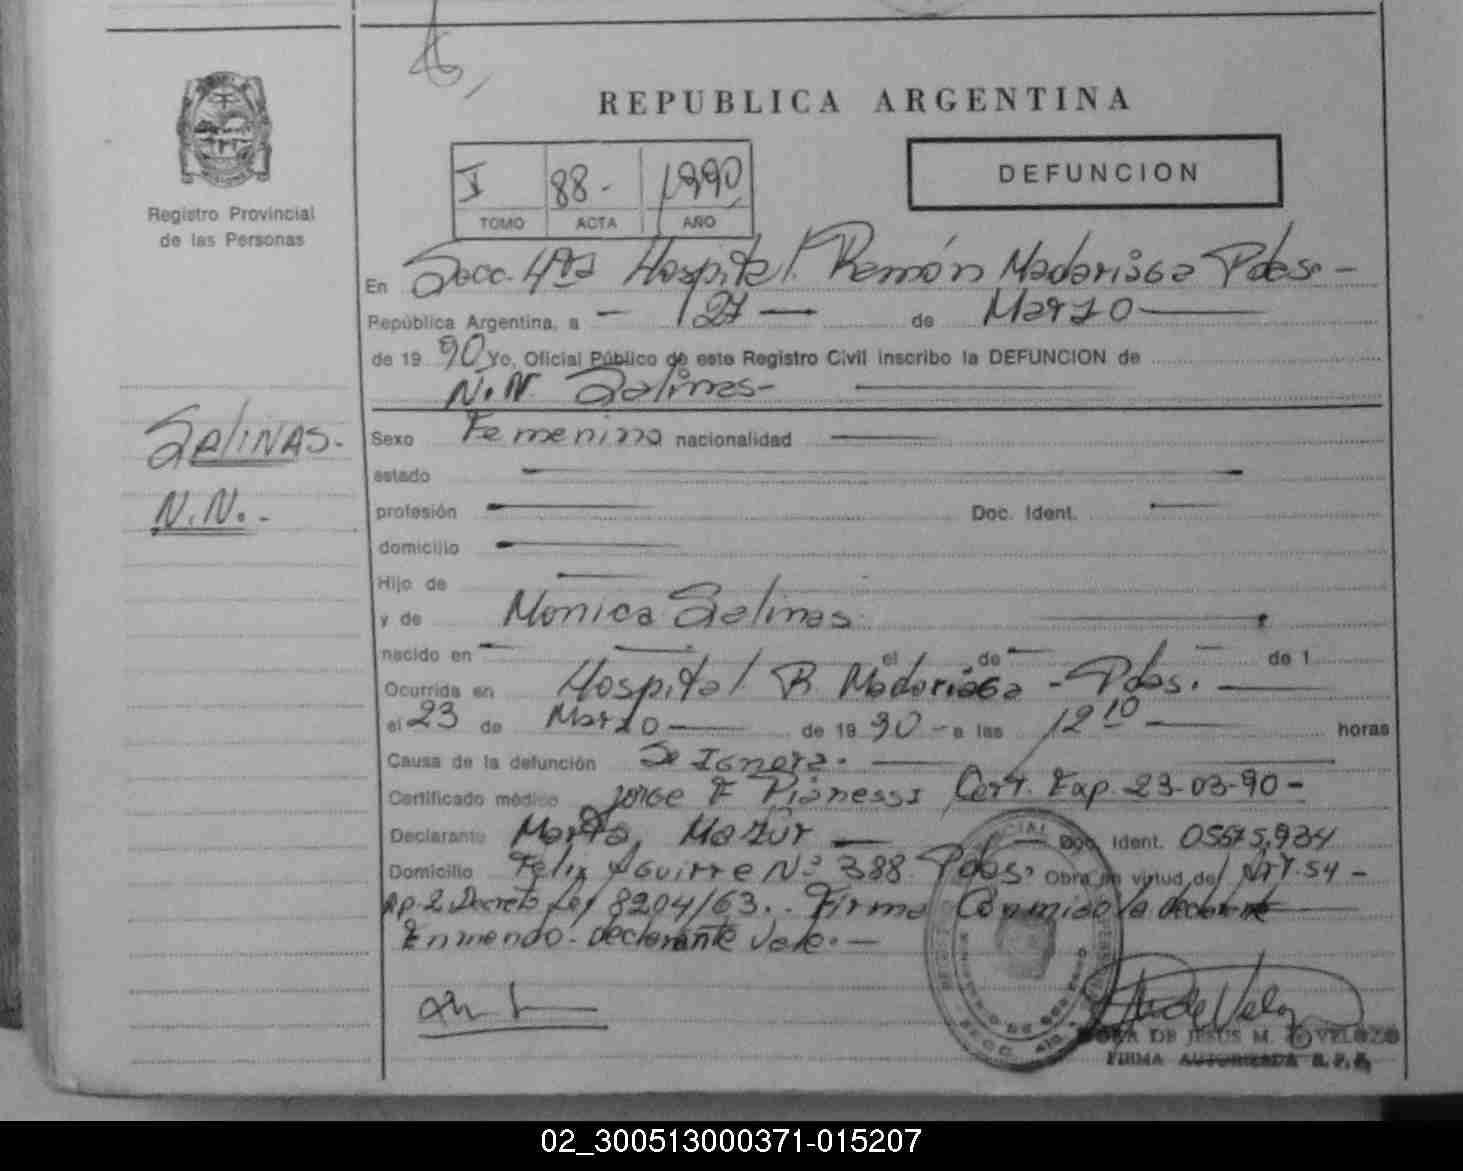 REPUBLICA ARGENTINA
Registro Provincial
de las Personas
I 88.- 1990
TOMO ACTA AÑO
DEFUNCION
En Secc. 4ta Hospital Ramón Madariaga Pdas.-
República Argentina, a - 27 - de Marzo
de 19 90 Yo, Oficial Público de este Registro Civil inscribo la DEFUNCION de
N.N. Salinas-
SALINAS.-
N.N.-
Sexo Femenino nacionalidad
estado
profesión Doc. Ident.
domicilio
Hijo de
y de Monica Salinas
nacido en el de de 1
Ocurrida en Hospital R. Madariaga - Pdas.
el 23 de Marzo de 19 90 - a las 12 10 horas
Causa de la defunción Se Ignora.
Certificado médico Jorge F Pianessi Cert. Exp. 23-03-90-
Declarante Marta Mazur Doc. Ident. 05.675.934
Domicilio Felix Aguirre Nº 388 Pdas. Obra en virtud de Art. 54-
Ap. 2 Decreto Ley 8204/63.. Firma Conmigo la declarante
Enmendo- declarante Vale.-
DE JESUS M. VELOZO
FIRMA AUTORIZADA R. P. P.
02_300513000371-015207